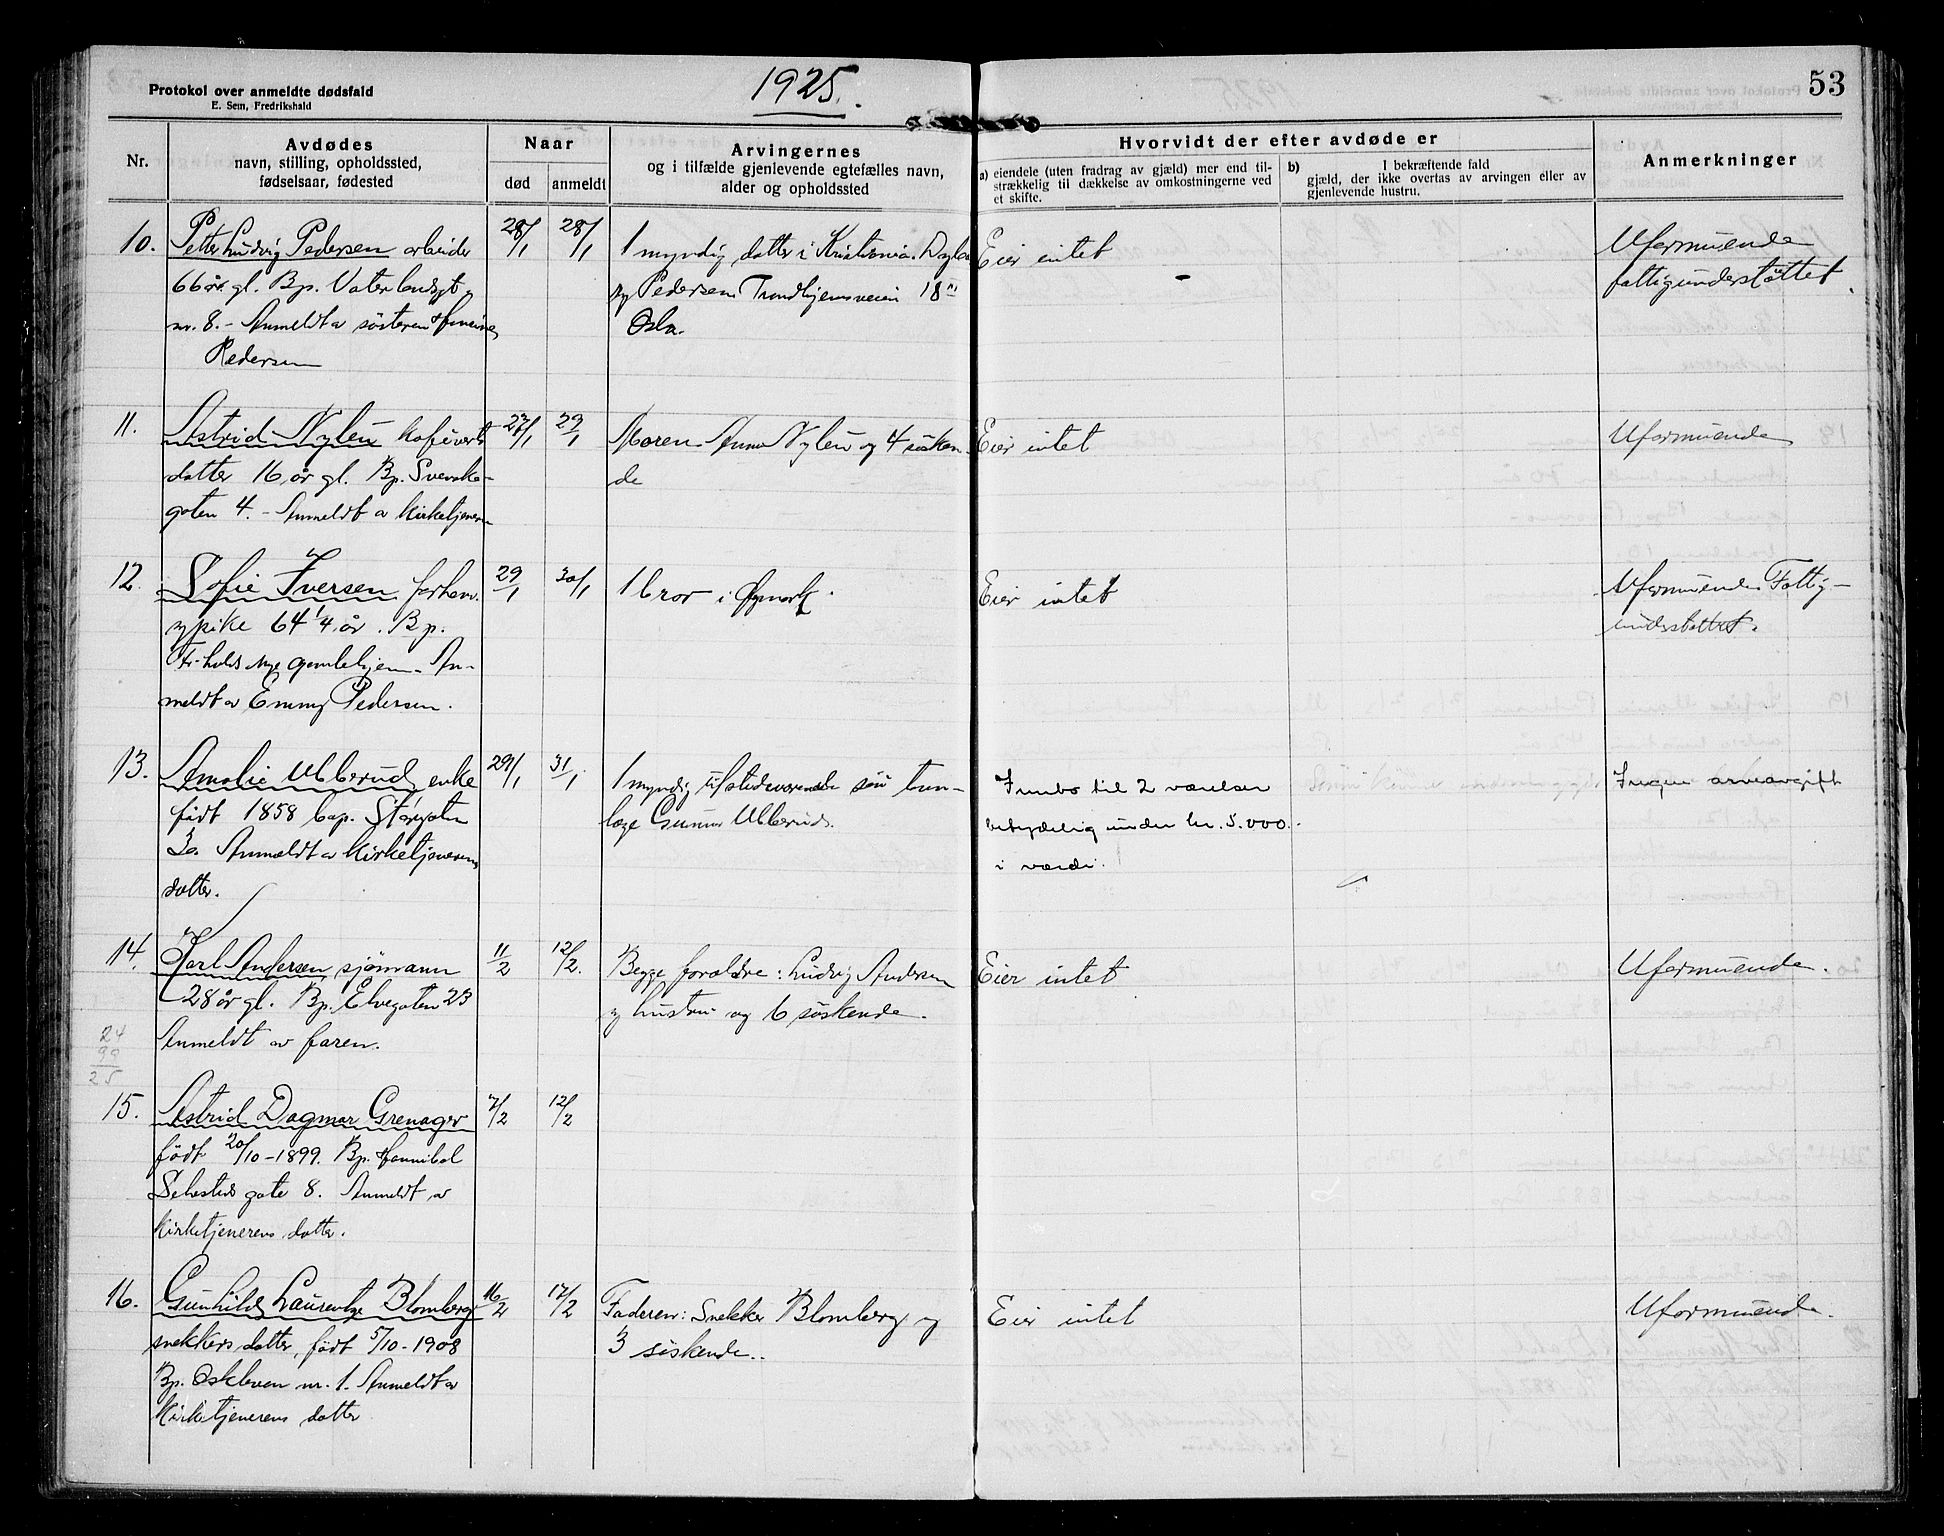 Protokol over anmeldte dødsfald
E. Sem, Fredrikshald
1925.
53
Nr.
Avdødes
navn, stilling, opholdssted,
fødselsaar, fødested
Naar
død
anmeldt
Arvingernes
og i tilfælde gjenlevende egtefælles navn,
alder og opholdssted
Hvorvidt der efter avdøde er
a) eiendele (uten fradrag av gjæld) mer end til-
strækkelig til dækkelse av omkostningerne ved
et skifte.
b) I bekræftende fald
gjæld, der ikke overtas av arvingen eller av
gjenlevende hustru.
Anmerkninger
10.
Petter Ludvig Pedersen arbeider
66 år. gl. Bp. Vaterlandsgt.
nr. 8. - Anmeldt av søsteren
Pedersen
28/1
28/1
1 myndig datter i Kristiania.
Pedersen Trondhjemsveien 18
Oslo.
Eier intet
-
Uformuende
fattigunderstøttet.
11.
Astrid Nylén
datter 16 år gl. Bp. Svenske-
gaten 4. - Anmeldt av kirketjeneren
27/1
29/1
Moren Anna Nylén og 4 søsken-
de
Eier intet
Uformuende
12.
Sofie Iversen forhenv.
sypike 64 1/4 år. Bp.
Fr.halds nye gamlehjem - An-
meldt av Emmy Pedersen.
29/1
30/1
1 bror i Øymark.
Eier intet
Uformuende Fattig-
understøttet.
13.
Amalie Ullerud enke
født 1858 bop. Storgaten
3a. Anmeldt av kirketjenerens
datter.
29/1
31/1
1 myndig tilstedeværende søn tan-
læge Gunnar Ulleruds.
Innbo til 2 værelser
betydelig under kr. 5.000.-
i værdi.
Ingen arveavgift
14.
Karl Andersen sjømann
28 år gl. Bp. Elvegaten 23
Anmeldt av faren.
11/2
12/2.
Begge forældre: Ludvig Andersen
og hustru og 6 søskende.
Eier intet
Uformuende.
24
99
25
15.
Astrid Dagmar Grenager
født 20/10-1899. Bp. Hannibal
Sehesteds gate 8. Anmeldt av
kirketjenerens datter.
7/2
12/2
16.
Gunhild Laurentze Blomberg
snekkers datter, født 5/10-1908
Bp. Oskleven nr. 1. Anmeldt av
Kirketjenerens datter
16/2
17/2
Faderen: Snekker Blomberg og
3 søskende..
Eier intet
Uformuende.